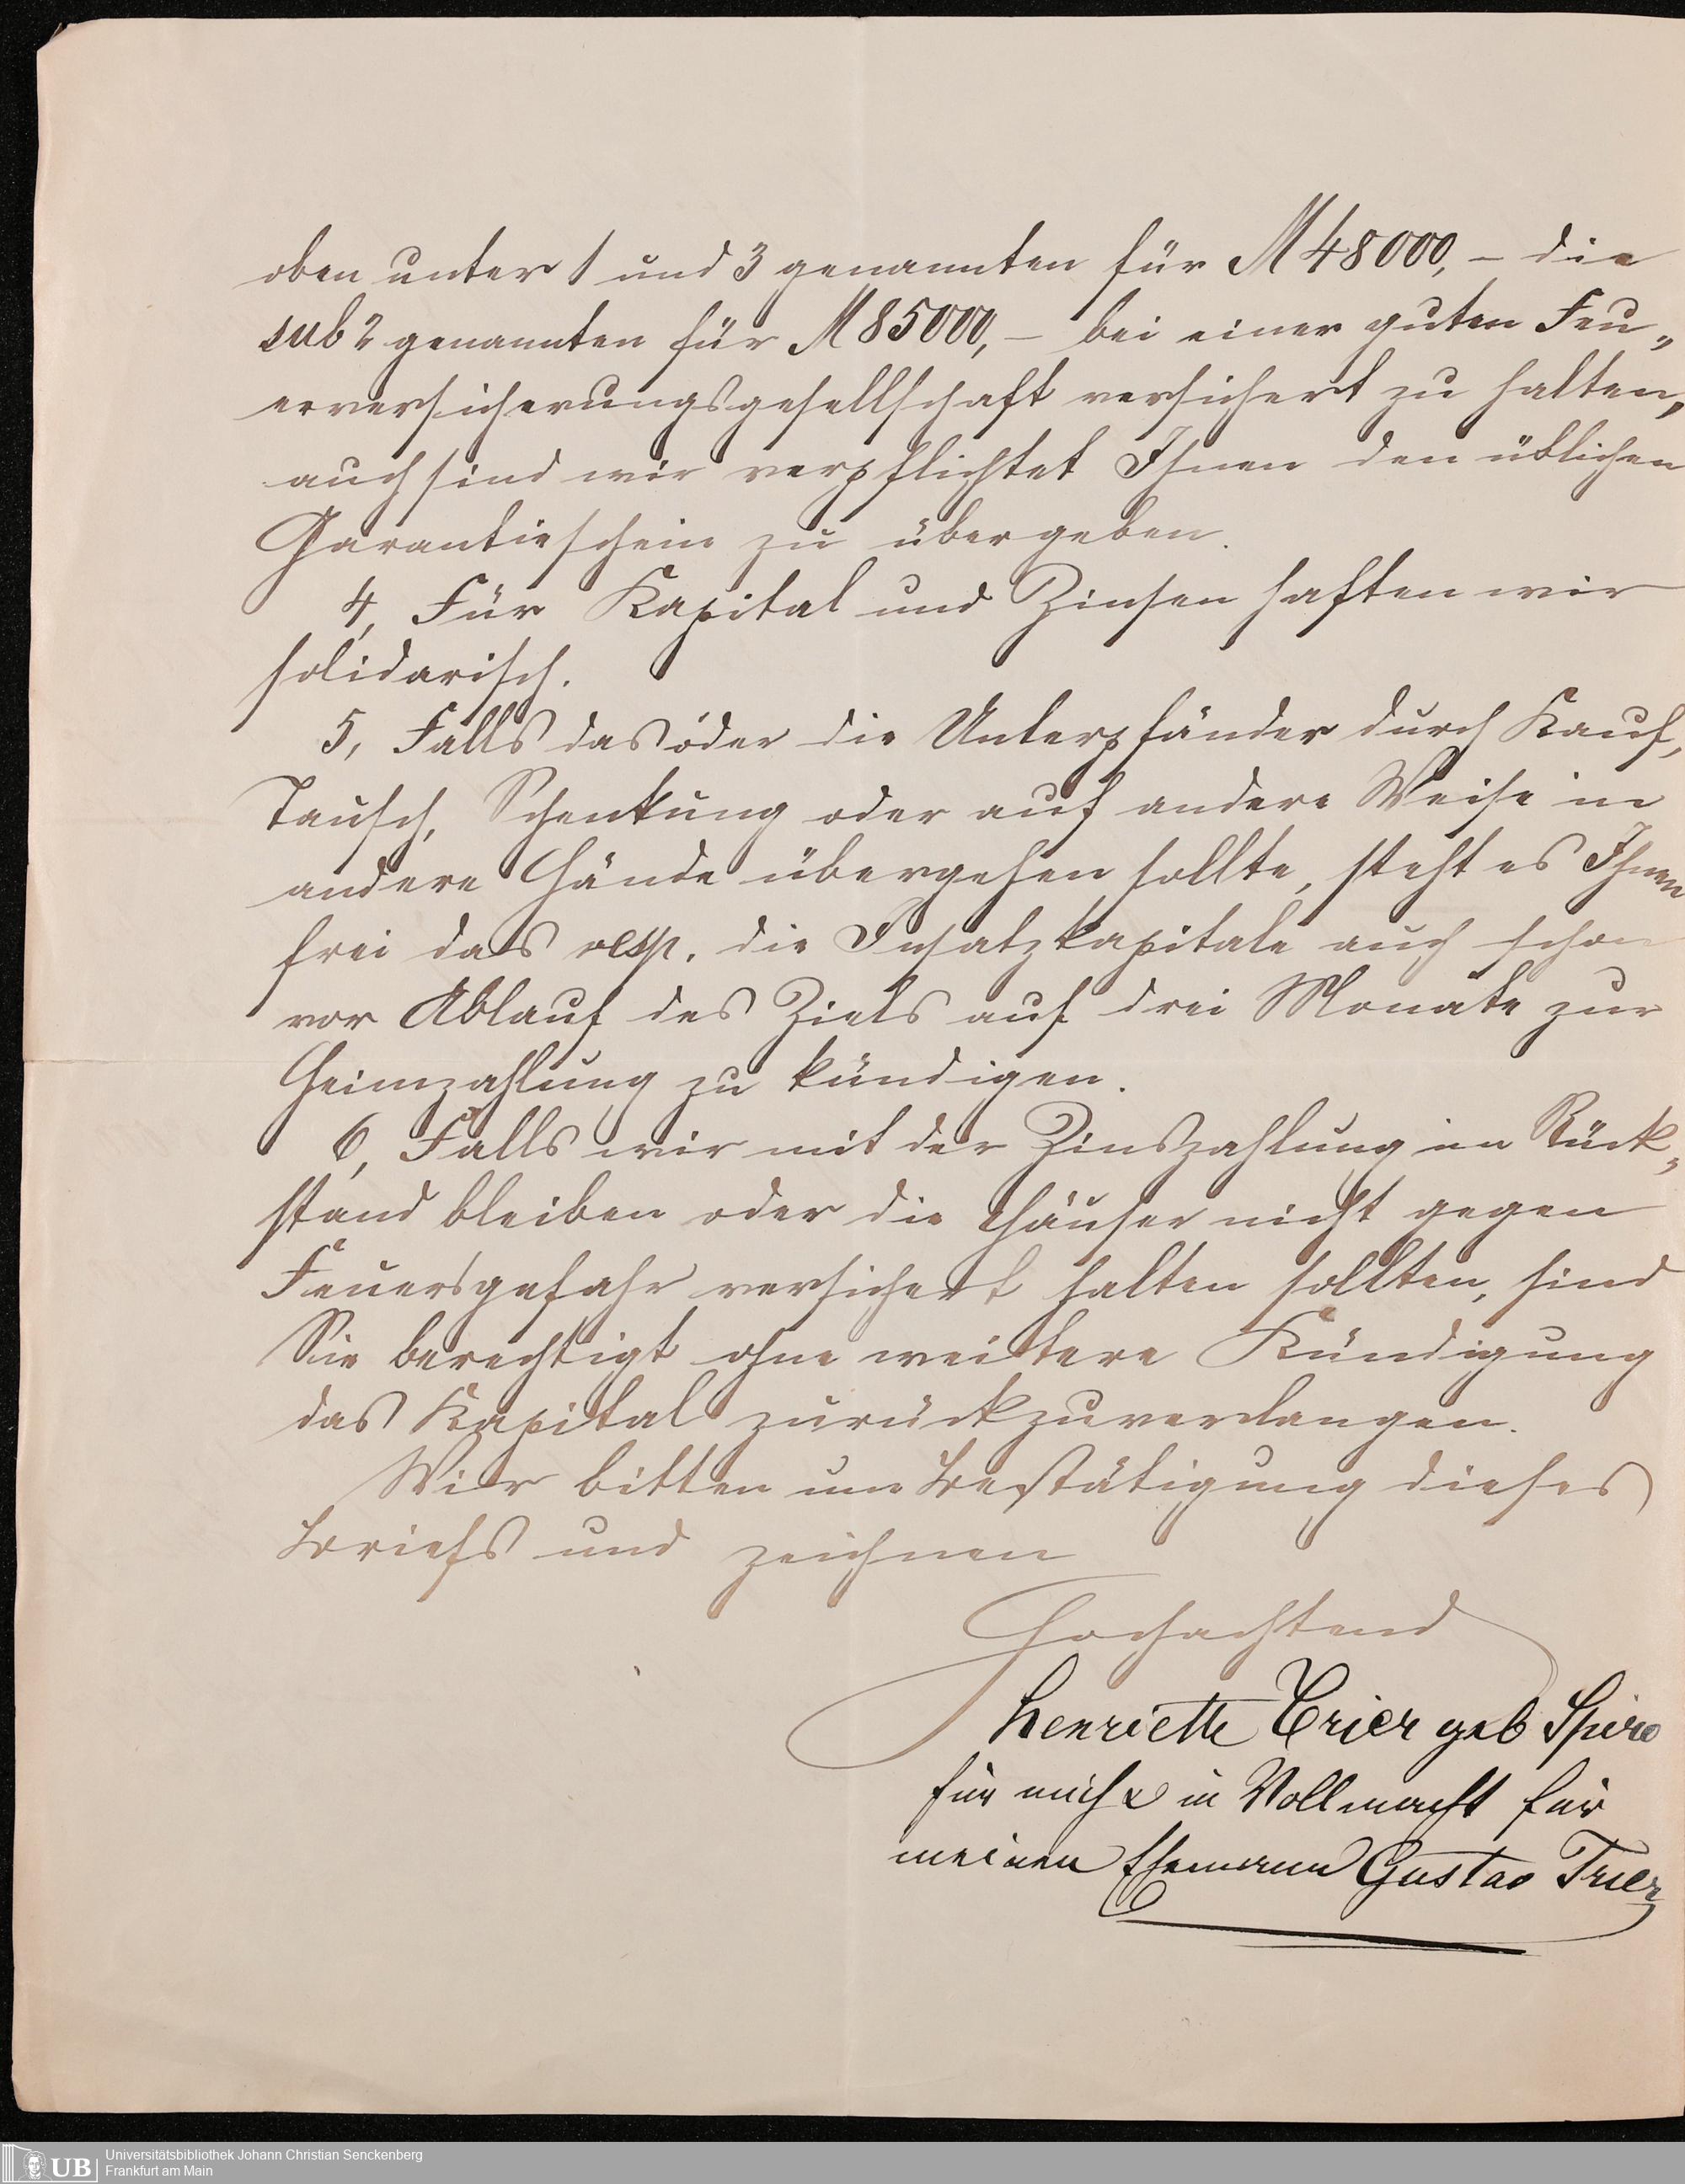 oben unter 1 und 3 genannten für M 48000,- die
sub 2 genannten für M 85000,- bei einer guten Feu„
erversicherungsgesellschaft versichert zu halten,
auch sind wir verpflichtet Ihnen den üblichen
Garantieschein zu übergeben.
4, Für Kapital und Zinsen haften wir
solidarisch.
5, Falls das oder die Unterpfänder durch Kauf,
Tausch, Schenkung oder auf andere Weise in
andere Hände übergehen sollte, steht es Ihnen
frei das resp. die Insatzkapitale auch schon
vor Ablauf des Ziels auf drei Monate zur
Heimzahlung zu kündigen.
6, Falls wir mit der Zinszahlung im Rück„
stand bleiben oder die Häuser nicht gegen
Feuersgefahr versichert halten sollten, sind
Sie berechtigt ohne weitere Kündigung
das Kapital zurückzuverlangen.
Wir bitten um Bestätigung dieses
Briefs und zeichnen
Hochachtend
Henriette Trier geb Spiro
für mich & in Vollmacht für
meinen Ehemann Gustav Trier
UB
Universitätsbibliothek Johann Christian Senckenberg
Frankfurt am Main